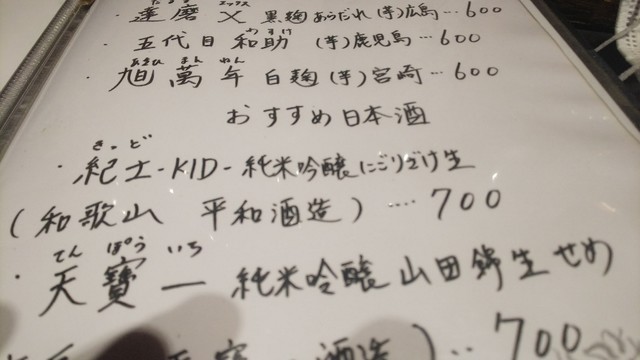 達磨 黒麹 あらだれ (芋)広島…600
・五代目 和助 (芋)鹿児島…600
あさひ まん ねん
・旭 萬 年 白麹(芋)宮崎…600
おすすめ日本酒
きっど
・紀土-KID-純米吟醸にごりざけ生
(和歌山 平和酒造)‥‥700
てん ぽう いち
・天寶一 純米吟醸山田錦生せめ
酒造)‥700